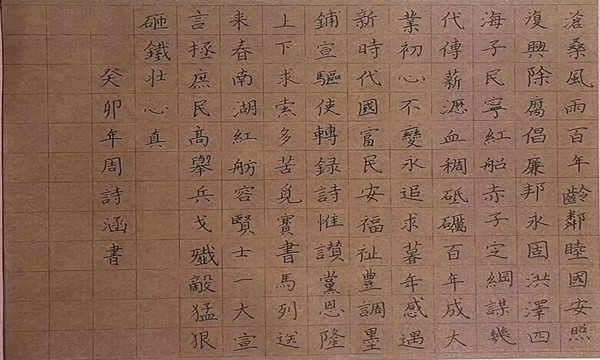 滄桑風雨百年齡鄰睦國安熙
復興除腐倡廉邦永固洪澤四
海子民寧紅船赤子定綱謀幾
代傳薪瀝血稠砥礪百年成大
業初心不變永追求暮年感遇
新時代國富民安福祉豐調墨
鋪宣驅使轉錄詩惟讚黨恩隆
上下求索多苦覓寶書馬列送
来春南湖紅舫容賢士一大宣
言拯庶民高舉兵戈殲敵猛狠
砸鐵壯心真
癸卯年周詩涵書